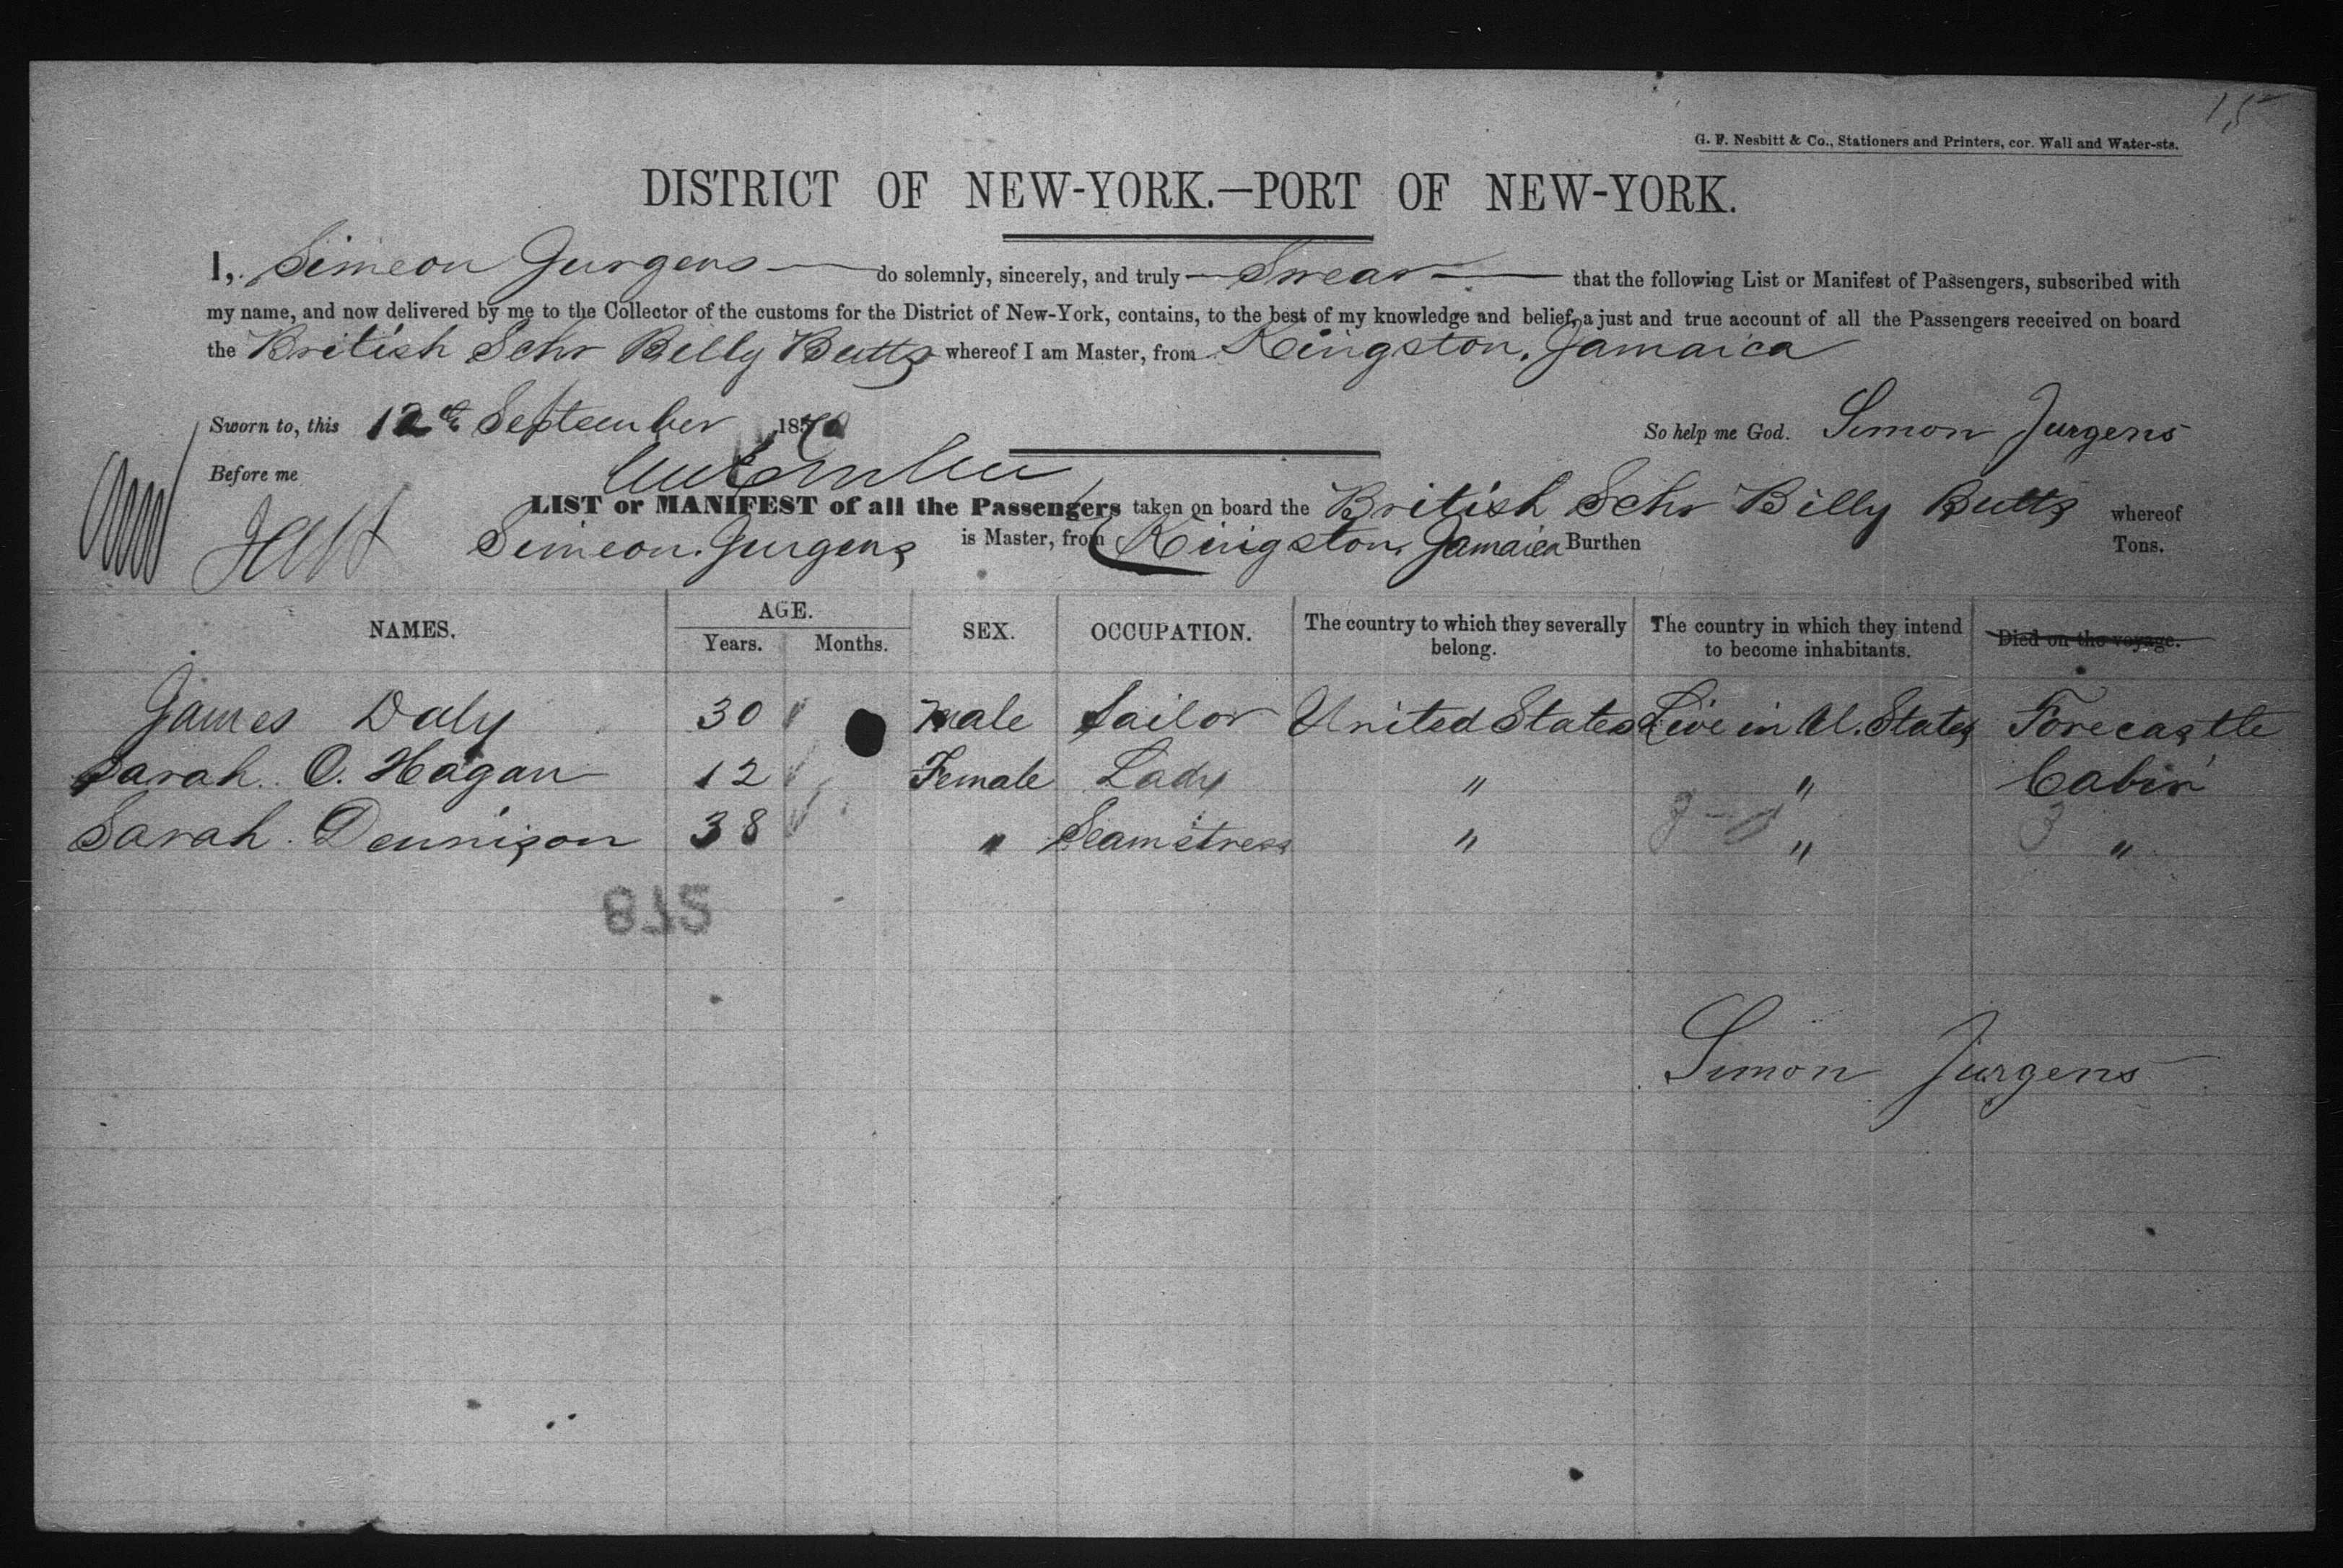 G. F. Nesbitt & Co., Stationers and Printers, cor. Wall and Water-sts.
DISTRICT OF NEW-YORK.—PORT OF NEW-YORK.
I, Simeon Jurgens do solemnly, sincerely, and truly Swear that the following List or Manifest of Passengers, subscribed with
my name, and now delivered by me to the Collector of the customs for the District of New-York, contains, to the best of my knowledge and belief, a just and true account of all the Passengers received on board
the British Schr Billy Butts whereof I am Master, from Kingston, Jamaica
Sworn to, this 12th September 1870 So help me God. Simon Jurgens
Before me
LIST or MANIFEST of all the Passengers taken on board the British Schr Billy Butts whereof
Simeon Jurgens is Master, from Kingston, Jamaica Burthen Tons.
NAMES. AGE. Years. Months. SEX. OCCUPATION. The country to which they severally belong. The country in which they intend to become inhabitants. Died on the voyage.
James Daly 30 male Sailor United States Live in U. States Forecastle
Sarah O. Hagan 12 Female Lady " " Cabin
Sarah Dennison 38 " Seamstress " " "
Simon Jurgens